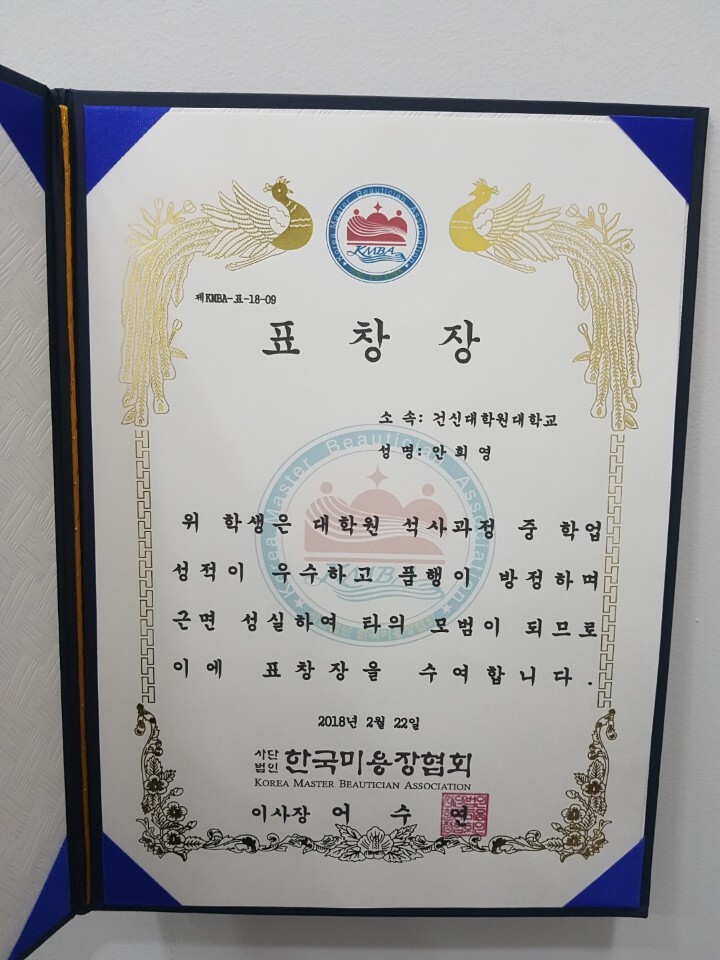 Korea Master Beautician Association
KMBA
제KMBA-표-18-09
표 창 장
소 속: 건신대학원대학교
성 명: 안 희 영
Korea Master Beautician Association
KMBA
위 학생은 대학원 석사과정 중 학업
성적이 우수하고 품행이 방정하며
근면 성실하여 타의 모범이 되므로
이에 표창장을 수여합니다.
2018년 2월 22일
사단법인 한국미용장협회
KOREA MASTER BEAUTICIAN ASSOCIATION
이사장 어 수 연